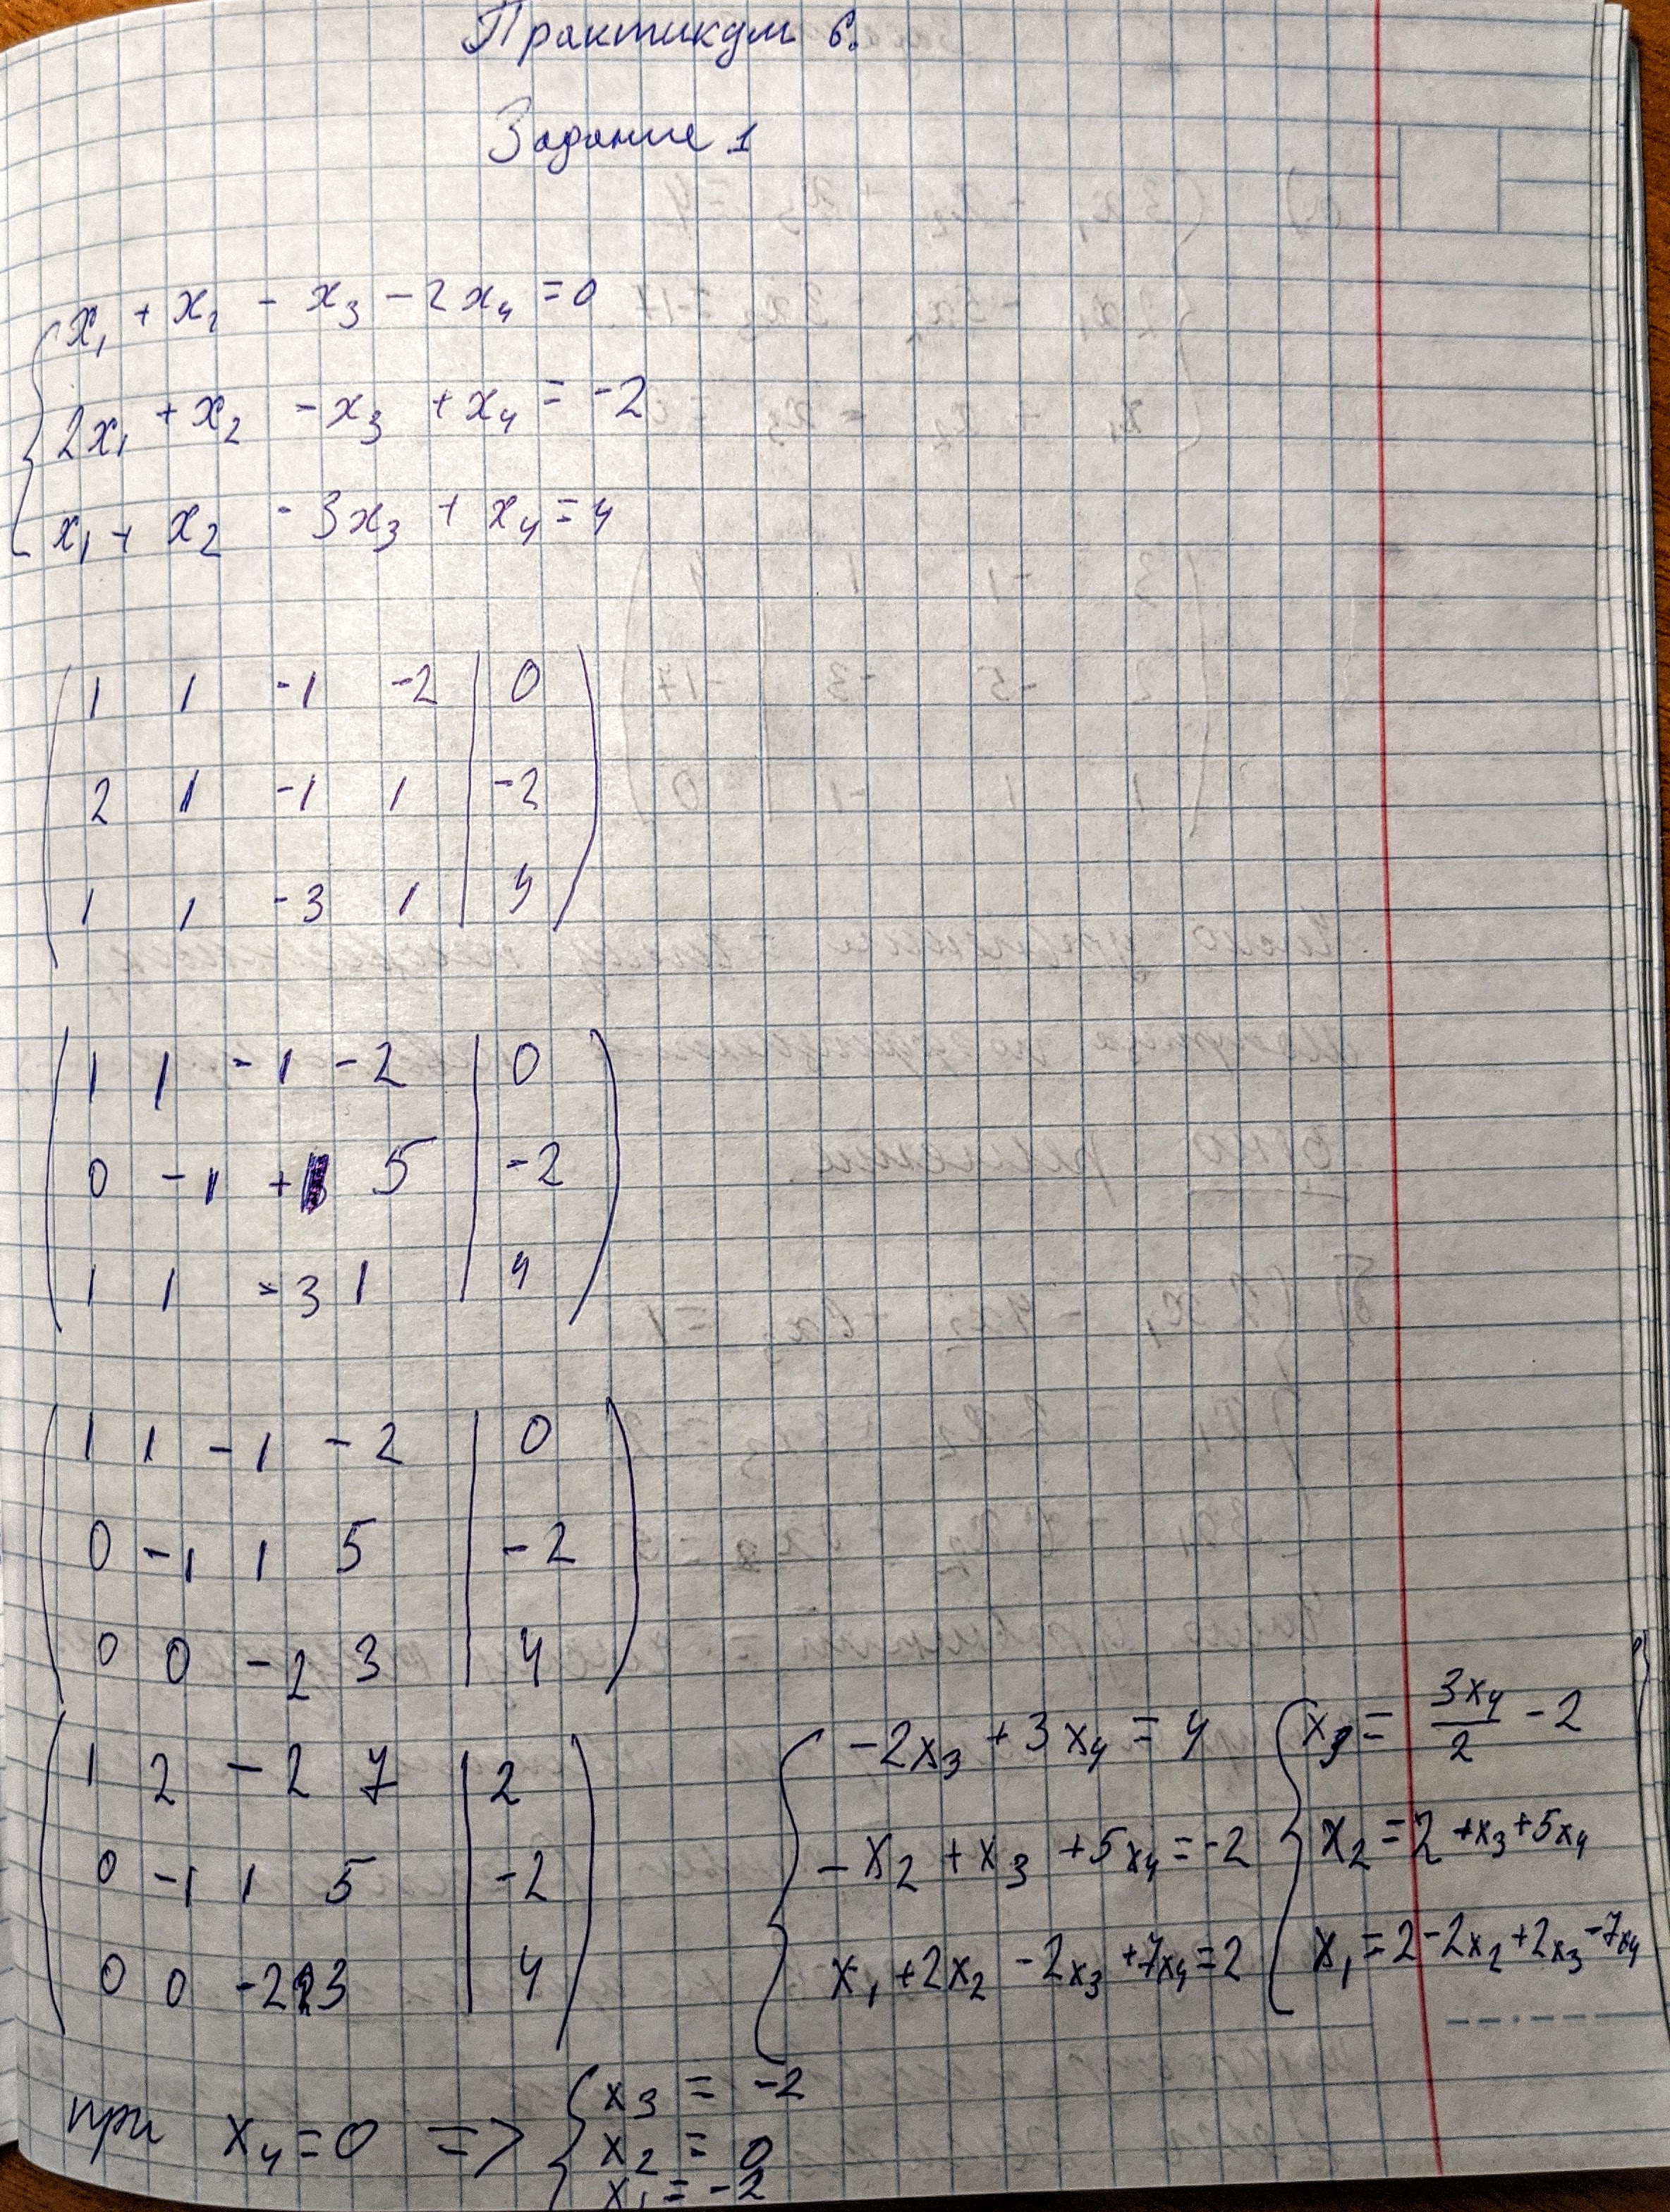 Практикум 6.
Задание 1
x₁ + x₂ - x₃ - 2x₄ = 0
2x₁ + x₂ - x₃ + x₄ = -2
x₁ + x₂ - 3x₃ + x₄ = 4
1 1 -1 -2 | 0
2 1 -1 1 | -2
1 1 -3 1 | 4
1 1 -1 -2 | 0
0 -1 +1 5 | -2
1 1 -3 1 | 4
1 1 -1 -2 | 0
0 -1 1 5 | -2
0 0 -2 3 | 4
1 2 -2 7 | 2
0 -1 1 5 | -2
0 0 -2 3 | 4
-2x₃ + 3x₄ = 4
-x₂ + x₃ + 5x₄ = -2
x₁ + 2x₂ - 2x₃ + 7x₄ = 2
x₃ = 3x₄/2 - 2
x₂ = 2 + x₃ + 5x₄
x₁ = 2 - 2x₂ + 2x₃ - 7x₄
при x₄ = 0 => x₃ = -2
x₂ = 0
x₁ = -2